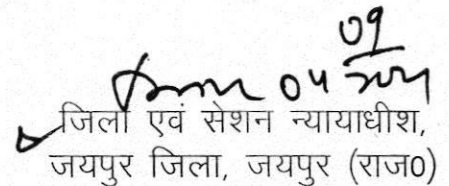 09
04
जिला एवं सेशन न्यायाधीश,
जयपुर जिला, जयपुर (राज0)